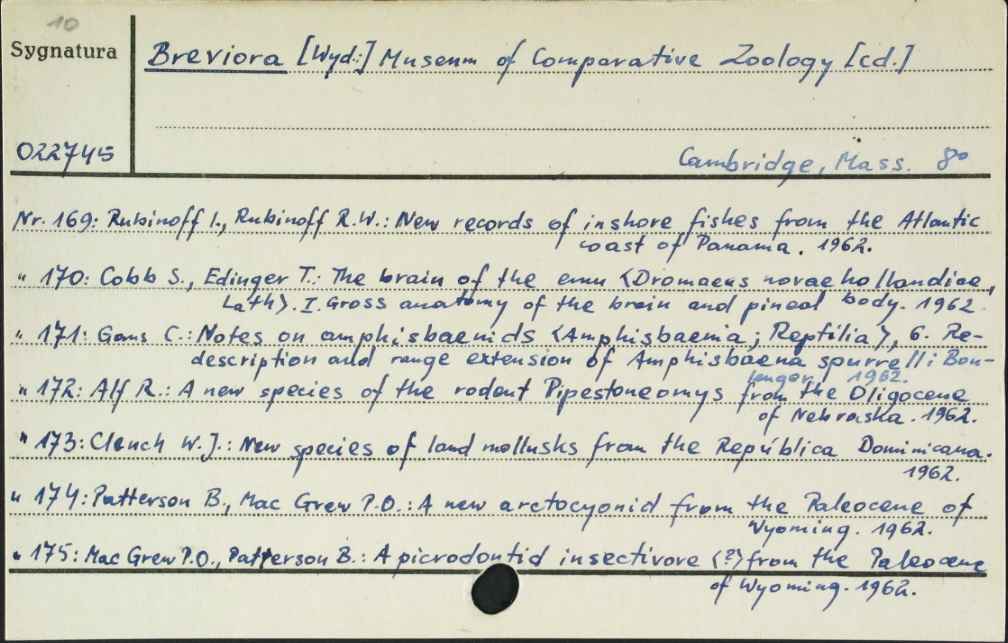 10
Sygnatura
Breviora [Wyd.:] Museum of Comparative Zoology [cd.]
022745
Cambridge, Mass. 8°
Nr. 169: Rubinoff I., Rubinoff R.W.: New records of inshore fishes from the Atlantic
coast of Panama. 1962.
" 170: Cobb S., Edinger T.: The brain of the emu <Dromaeus novaehollandiae,
Lath>. I. Gross anatomy of the brain and pineal body. 1962.
" 171: Gans C.: Notes on amphisbaenids <Amphisbaenia; Reptilia>, 6. Re-
description and range extension of Amphisbaena spurrelli Bou-
lenger. 1962.
" 172: Alf R.: A new species of the rodent Pipestoneomys from the Oligocene
of Nebraska. 1962.
" 173: Clench W.J.: New species of land mollusks from the República Dominicana.
1962.
" 174: Patterson B., Mac Grew P.O.: A new arctocyonid from the Paleocene of
Wyoming. 1962.
" 175: Mac Grew P.O., Patterson B.: A picrodontid insectivore <?> from the Paleocene
of Wyoming. 1962.